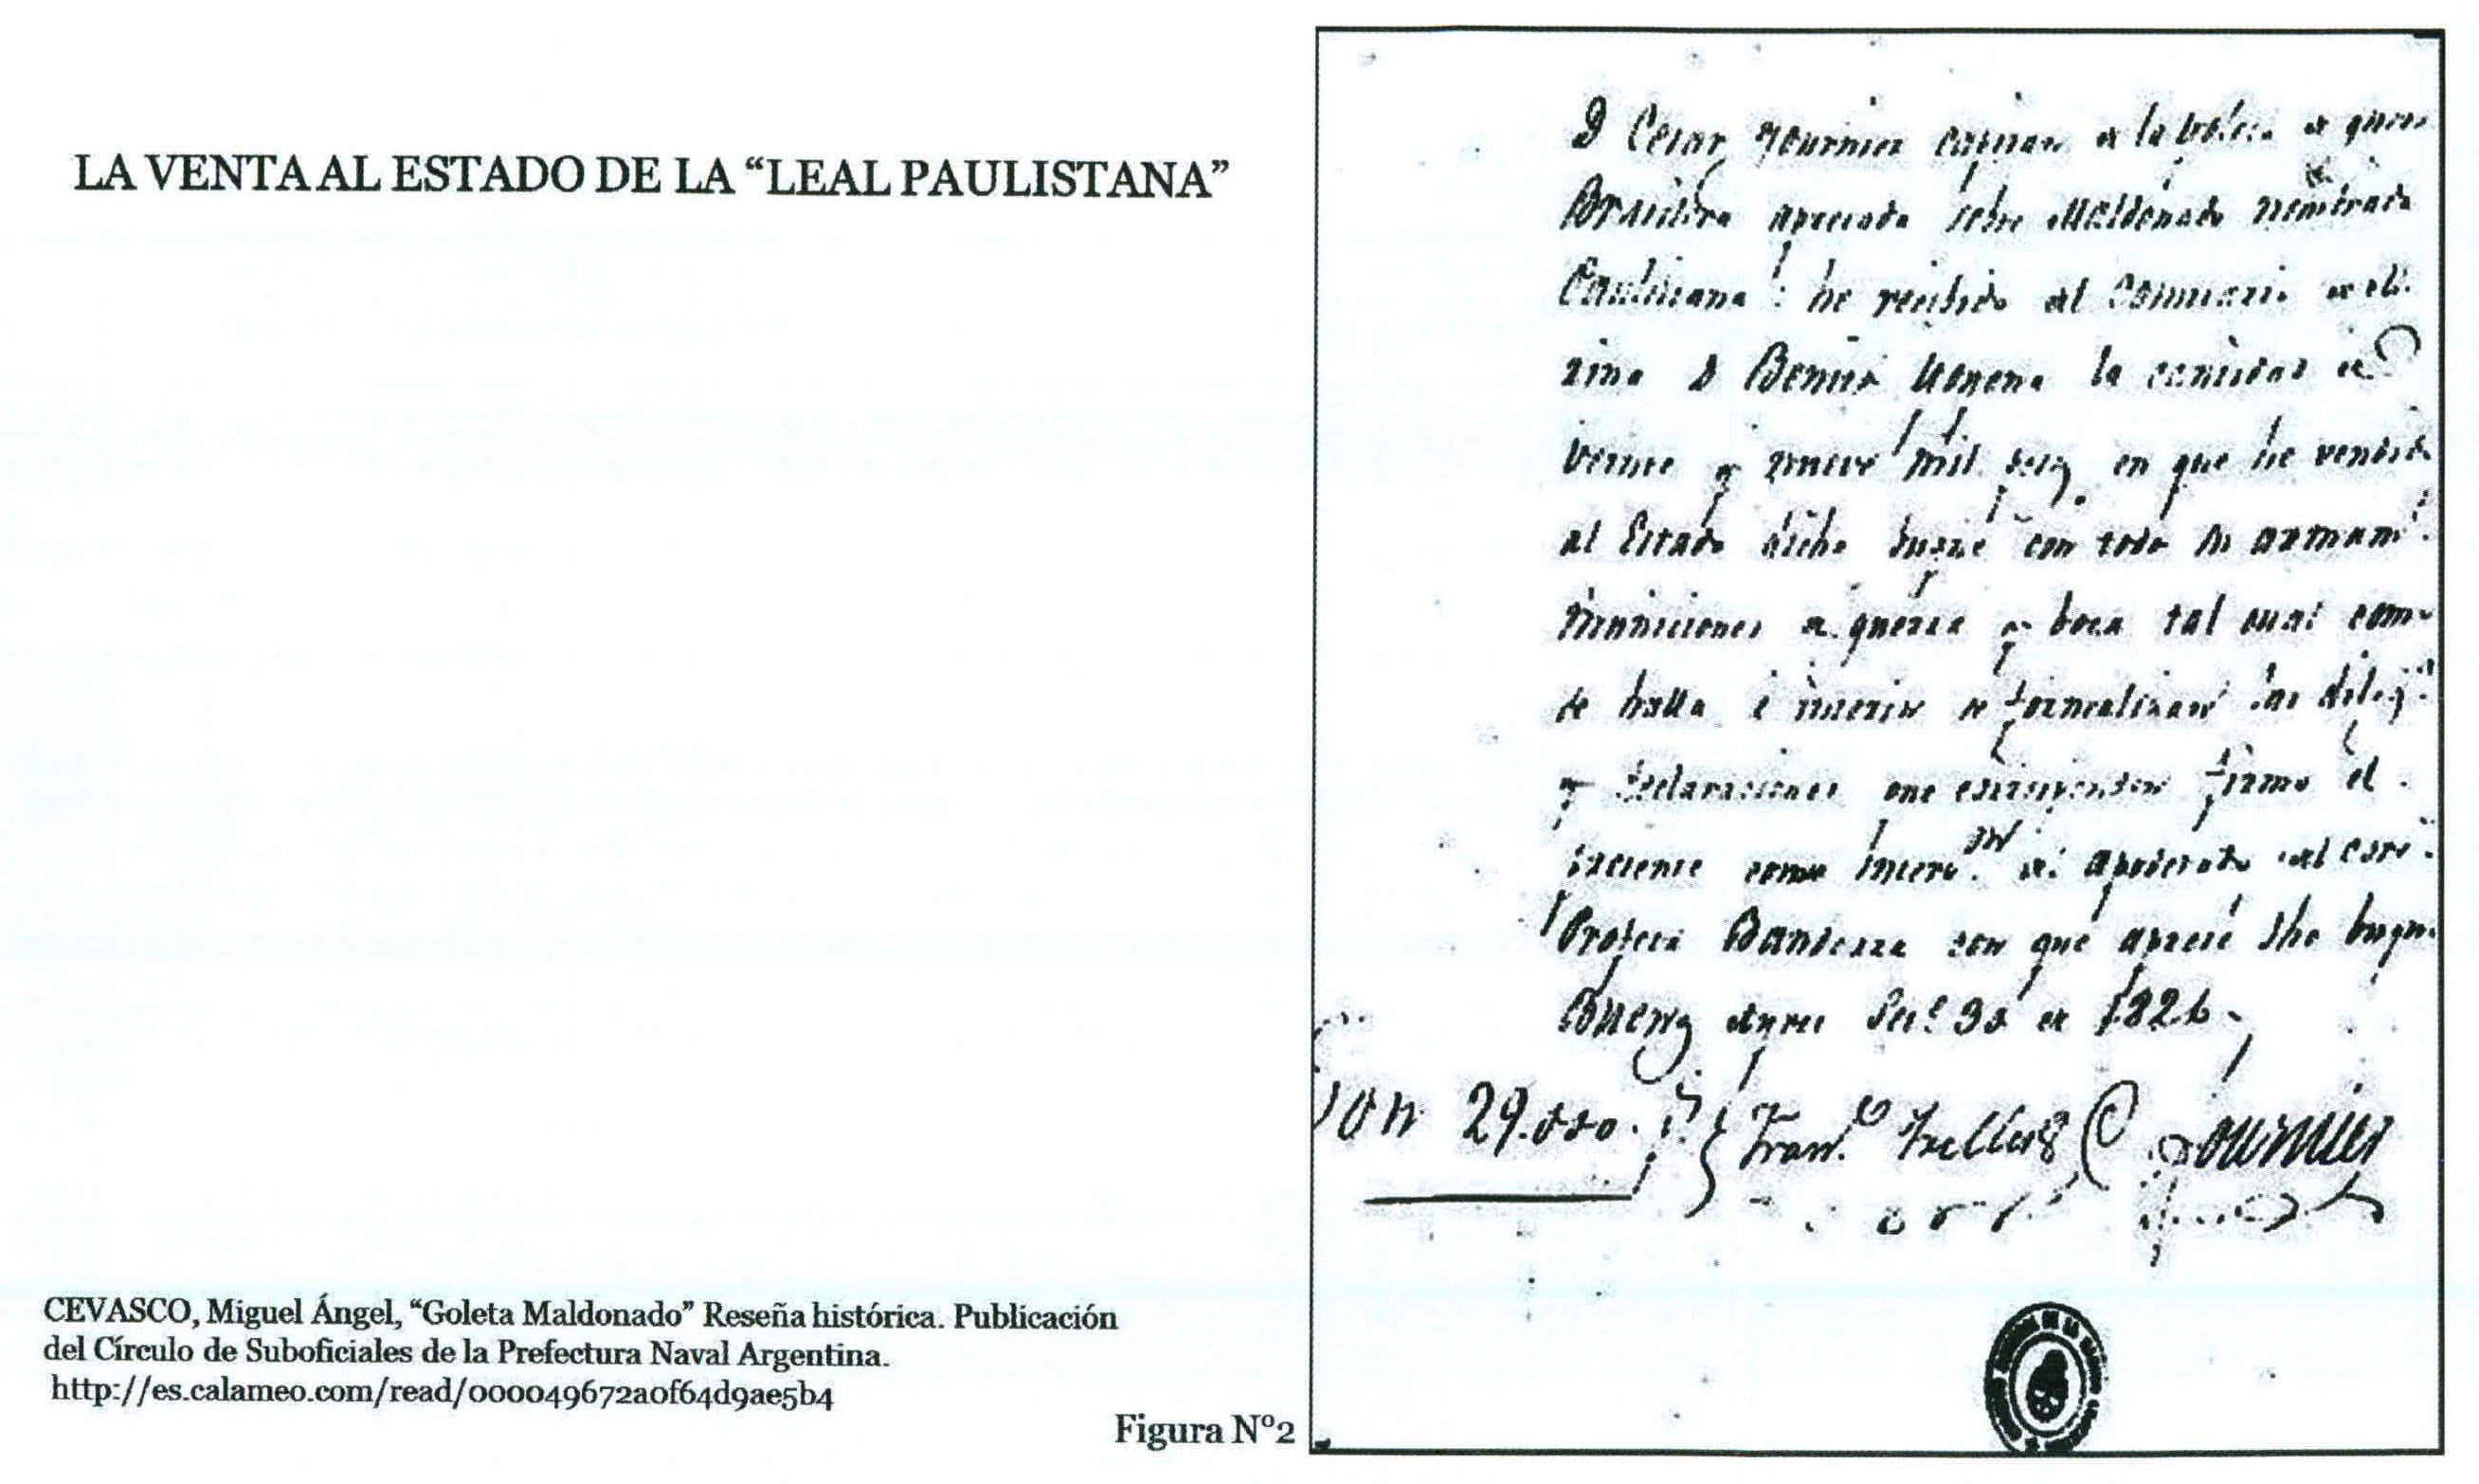 LA VENTA AL ESTADO DE LA “LEAL PAULISTANA”
D Cesar Fournier capitan de la goleta de guerra
Brasilera apresada sobre Maldonado nombrada
Paulistana: he recibido del Comisario de Ma
rina D Benito la cantidad de
veinte y nueve mil pesos en que he vendido
al Estado dicho buque con todo su armamto
municiones de guerra y boca tal cual como
se halla é interin se formalizan las diligs
y declaraciones que corresponden firmo el
presente como apoderado del cors.
Bandera con que apresé dho buque
Buenos Ayres 30 de 1826.
Son 29.000. Franco Trelles C Fournier
CEVASCO, Miguel Ángel, “Goleta Maldonado” Reseña histórica. Publicación
del Círculo de Suboficiales de la Prefectura Naval Argentina.
http://es.calameo.com/read/000049672a0f64d9ae5b4
Figura Nº2